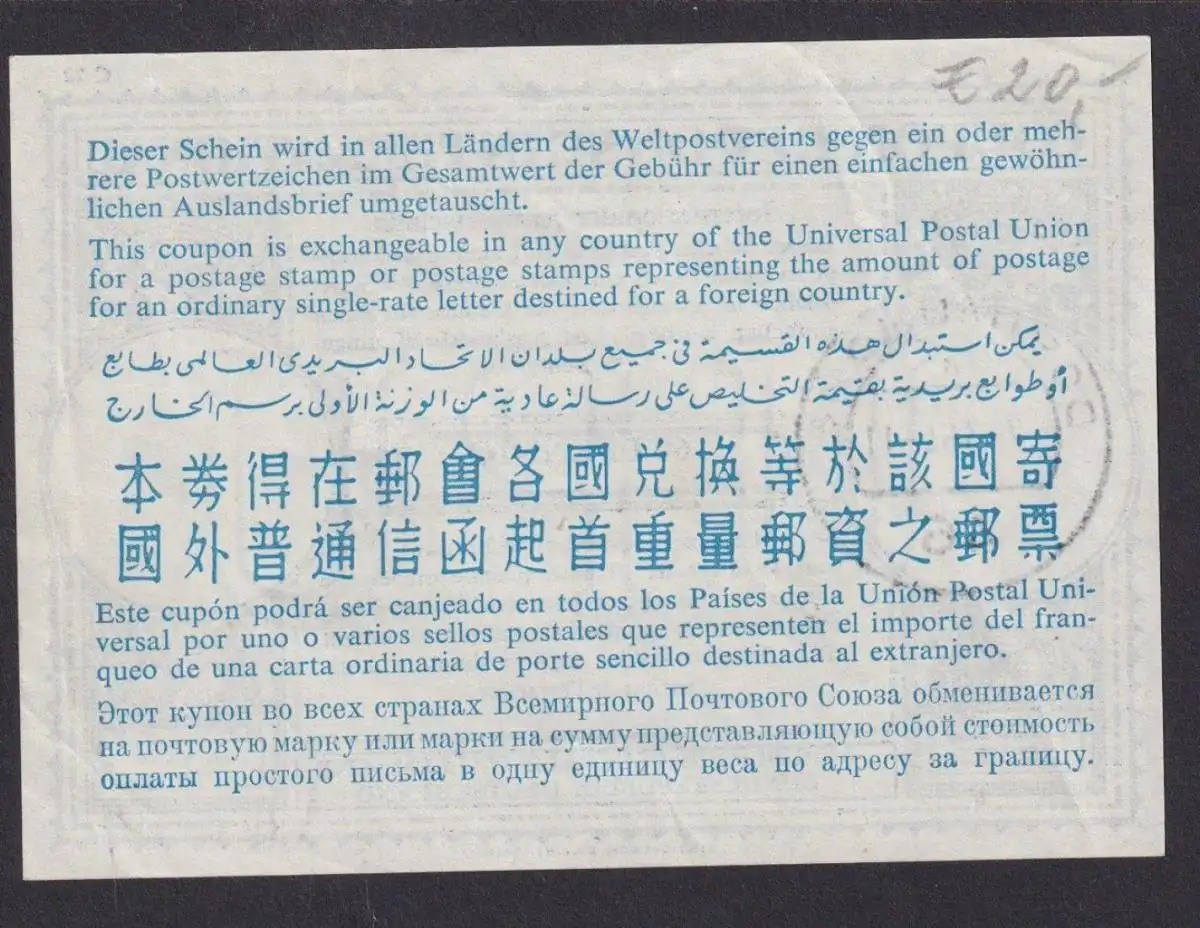 € 20,-
Dieser Schein wird in allen Ländern des Weltpostvereins gegen ein oder meh-
rere Postwertzeichen im Gesamtwert der Gebühr für einen einfachen gewöhn-
lichen Auslandsbrief umgetauscht.
This coupon is exchangeable in any country of the Universal Postal Union
for a postage stamp or postage stamps representing the amount of postage
for an ordinary single-rate letter destined for a foreign country.
يمكن استبدال هذه القسيمة فى جميع بلدان الاتحاد البريدى العالمى بطابع
أو طوابع بريدية بقيمة التخليص على رسالة عادية من الوزنة الأولى برسم الخارج
本券得在郵會各國兑換等於該國寄
國外普通信函起首重量郵資之郵票
Este cupón podrá ser canjeado en todos los Países de la Unión Postal Uni-
versal por uno o varios sellos postales que representen el importe del fran-
queo de una carta ordinaria de porte sencillo destinada al extranjero.
Этот купон во всех странах Всемирного Почтового Союза обменивается
на почтовую марку или марки на сумму представляющую собой стоимость
оплаты простого письма в одну единицу веса по адресу за границу.